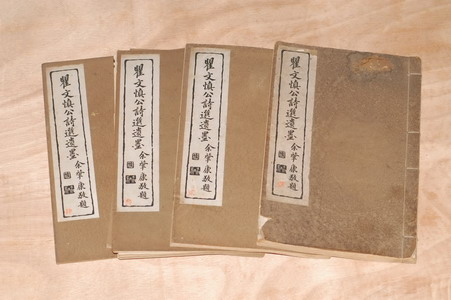 瞿文慎公詩選遺墨
余肇康敬題
瞿文慎公詩選遺墨
余肇康敬題
瞿文慎公詩選遺墨
余肇康敬題
瞿文慎公詩選遺墨
余肇康敬題